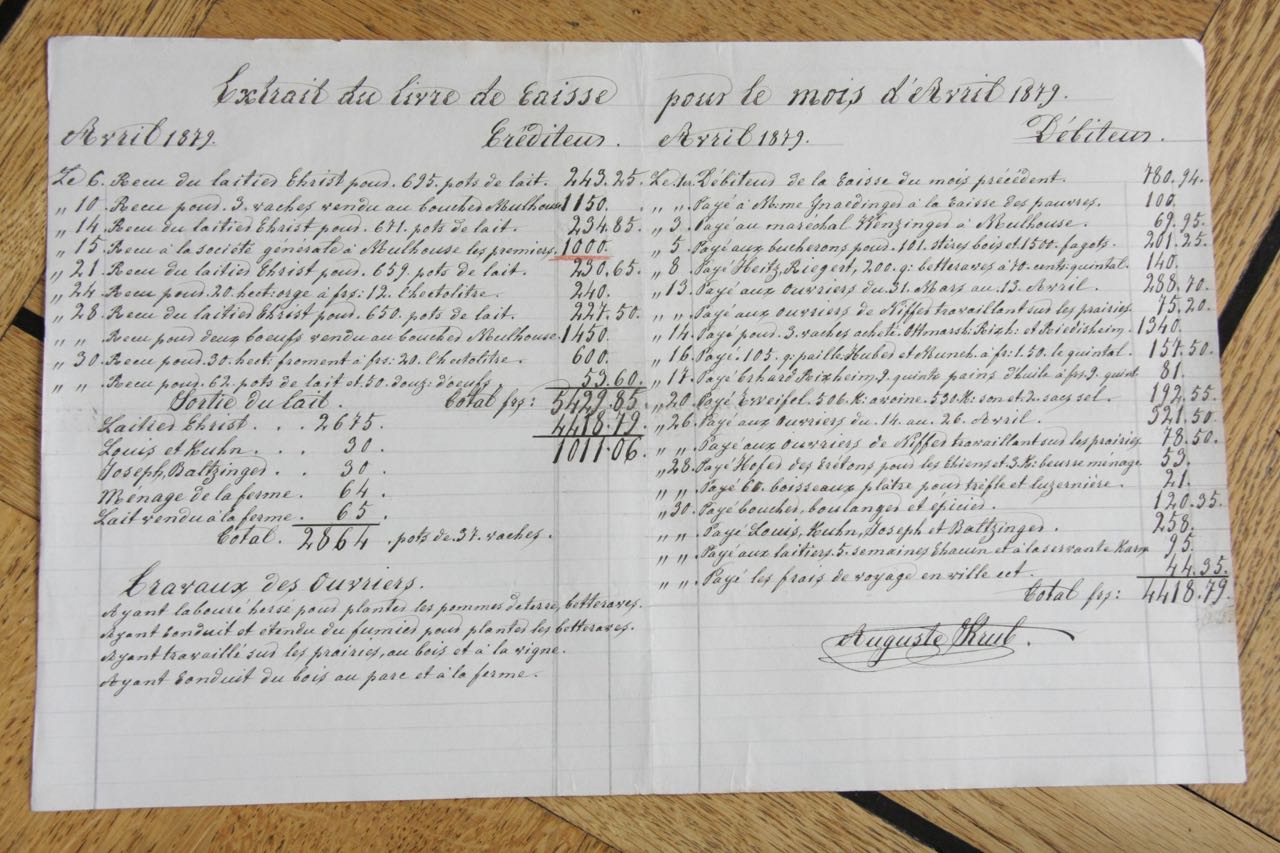 Extrait du livre de Caisse pour le mois d'Avril 1879.
Avril 1879. Créditeur.
Le 6. Recu du laitier Christ pour. 695. pots de lait. 243.25.
„ 10 Recu pour. 3. vaches vendu au boucher Mulhouse 1150.
„ 14 Recu du laitier Christ pour. 671. pots de lait. 234.85.
„ 15 Recu à la société générale à Mulhouse les premiers, 1000.
„ 21. Recu du laitier Christ pour. 659. pots de lait. 230.65.
„ 24. Recu pour. 20. hect: orge à frs: 12. l'hectolitre. 240.
„ 28. Recu du laitier Christ pour. 650. pots de lait. 227.50.
„ „ Recu pour deux boeufs vendu au boucher Mulhouse. 1450.
„ 30. Recu pour. 30. hect: froment à frs: 20. l'hectolitre. 600.
„ „ Recu pour. 62. pots de lait et. 50. douz: d'oeufs. 53.60.
Sortie du lait. Total frs: 5429.85.
Laitier Christ. . . 2675. 4418.79.
Louis et Kuhn. . . 30. 1011.06.
Joseph, Baltzinger. . 30.
Menage de la ferme. 64.
Lait vendu à la ferme. 65.
Total. 2864. pots de. 37. vaches.
Travaux des Ouvriers.
Ayant labouré hersé pour planter les pommes de terre, betteraves.
Ayant conduit et étendu du fumier pour planter les betteraves.
Ayant travaillé sur les prairies, au bois et à la vigne.
Ayant conduit du bois au parc et à la ferme.
Avril 1879. Débiteur.
Le 1er Débiteur de la Caisse du mois précédent. 780.94.
„ „ Payé à Mme Gnaedinger à la Caisse des pauvres. 100.
„ 3. Payé au maréchal Wenzinger à Mulhouse. 69.95.
„ 5. Payé aux bucherons pour. 101. stères bois et 1500. fagots. 201.25.
„ 8. Payé Heitz, Riegert, 200. q: betteraves à 70. cent: quintal. 140.
„ 13. Payé aux ouvriers du. 31. Mars au. 13. Avril. 288.70.
„ „ Payé aux ouvriers de Niffer travaillant sur les prairies. 75.20.
„ 14. Payé pour. 3. vaches acheté. Ottmarsh: Rixh: et Riedisheim. 1340.
„ 16. Payé. 105. q: paille Huber et Munch. à fr: 1.50. le quintal. 157.50.
„ 17. Payé Erhard Rixheim, 9. quinto pains d'huile à frs. 9. quint 81.
„ 20. Payé 506. K: avoine. 530. K: son et 2. sacs sel. 192.55.
„ 26. Payé aux ouvriers du. 14. au. 26. Avril. 321.50.
„ „ Payé aux ouvriers de Niffer travaillant sur les prairies. 78.50.
„ 28. Payé Hofer des Crétons pour les Chiens et 3. K: beurre ménage. 53.
„ „ Payé boisseaux plâtre pour trèfle et luzernière. 21.
„ 30. Payé boucher, boulanger et épicier. 120.35.
„ „ Payé Louis, Kuhn, Joseph et Baltzinger. 258.
„ „ Payé aux laitiers. 5. semaines chacun et à la servante 95.
„ „ Payé les frais de voyage en ville ect. 44.35.
Total frs: 4418.79.
Auguste